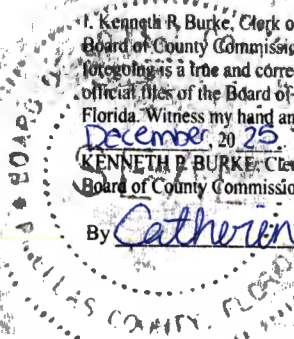 I, Kenneth R. Burke, Clerk o
Board of County Commissio
foregoing is a true and corre
official files of the Board of
Florida. Witness my hand an
December 20 25.
KENNETH P. BURKE, Cle
Board of County Commissio
By Catheren
BOARD
LLAS COUNTY, FLOR